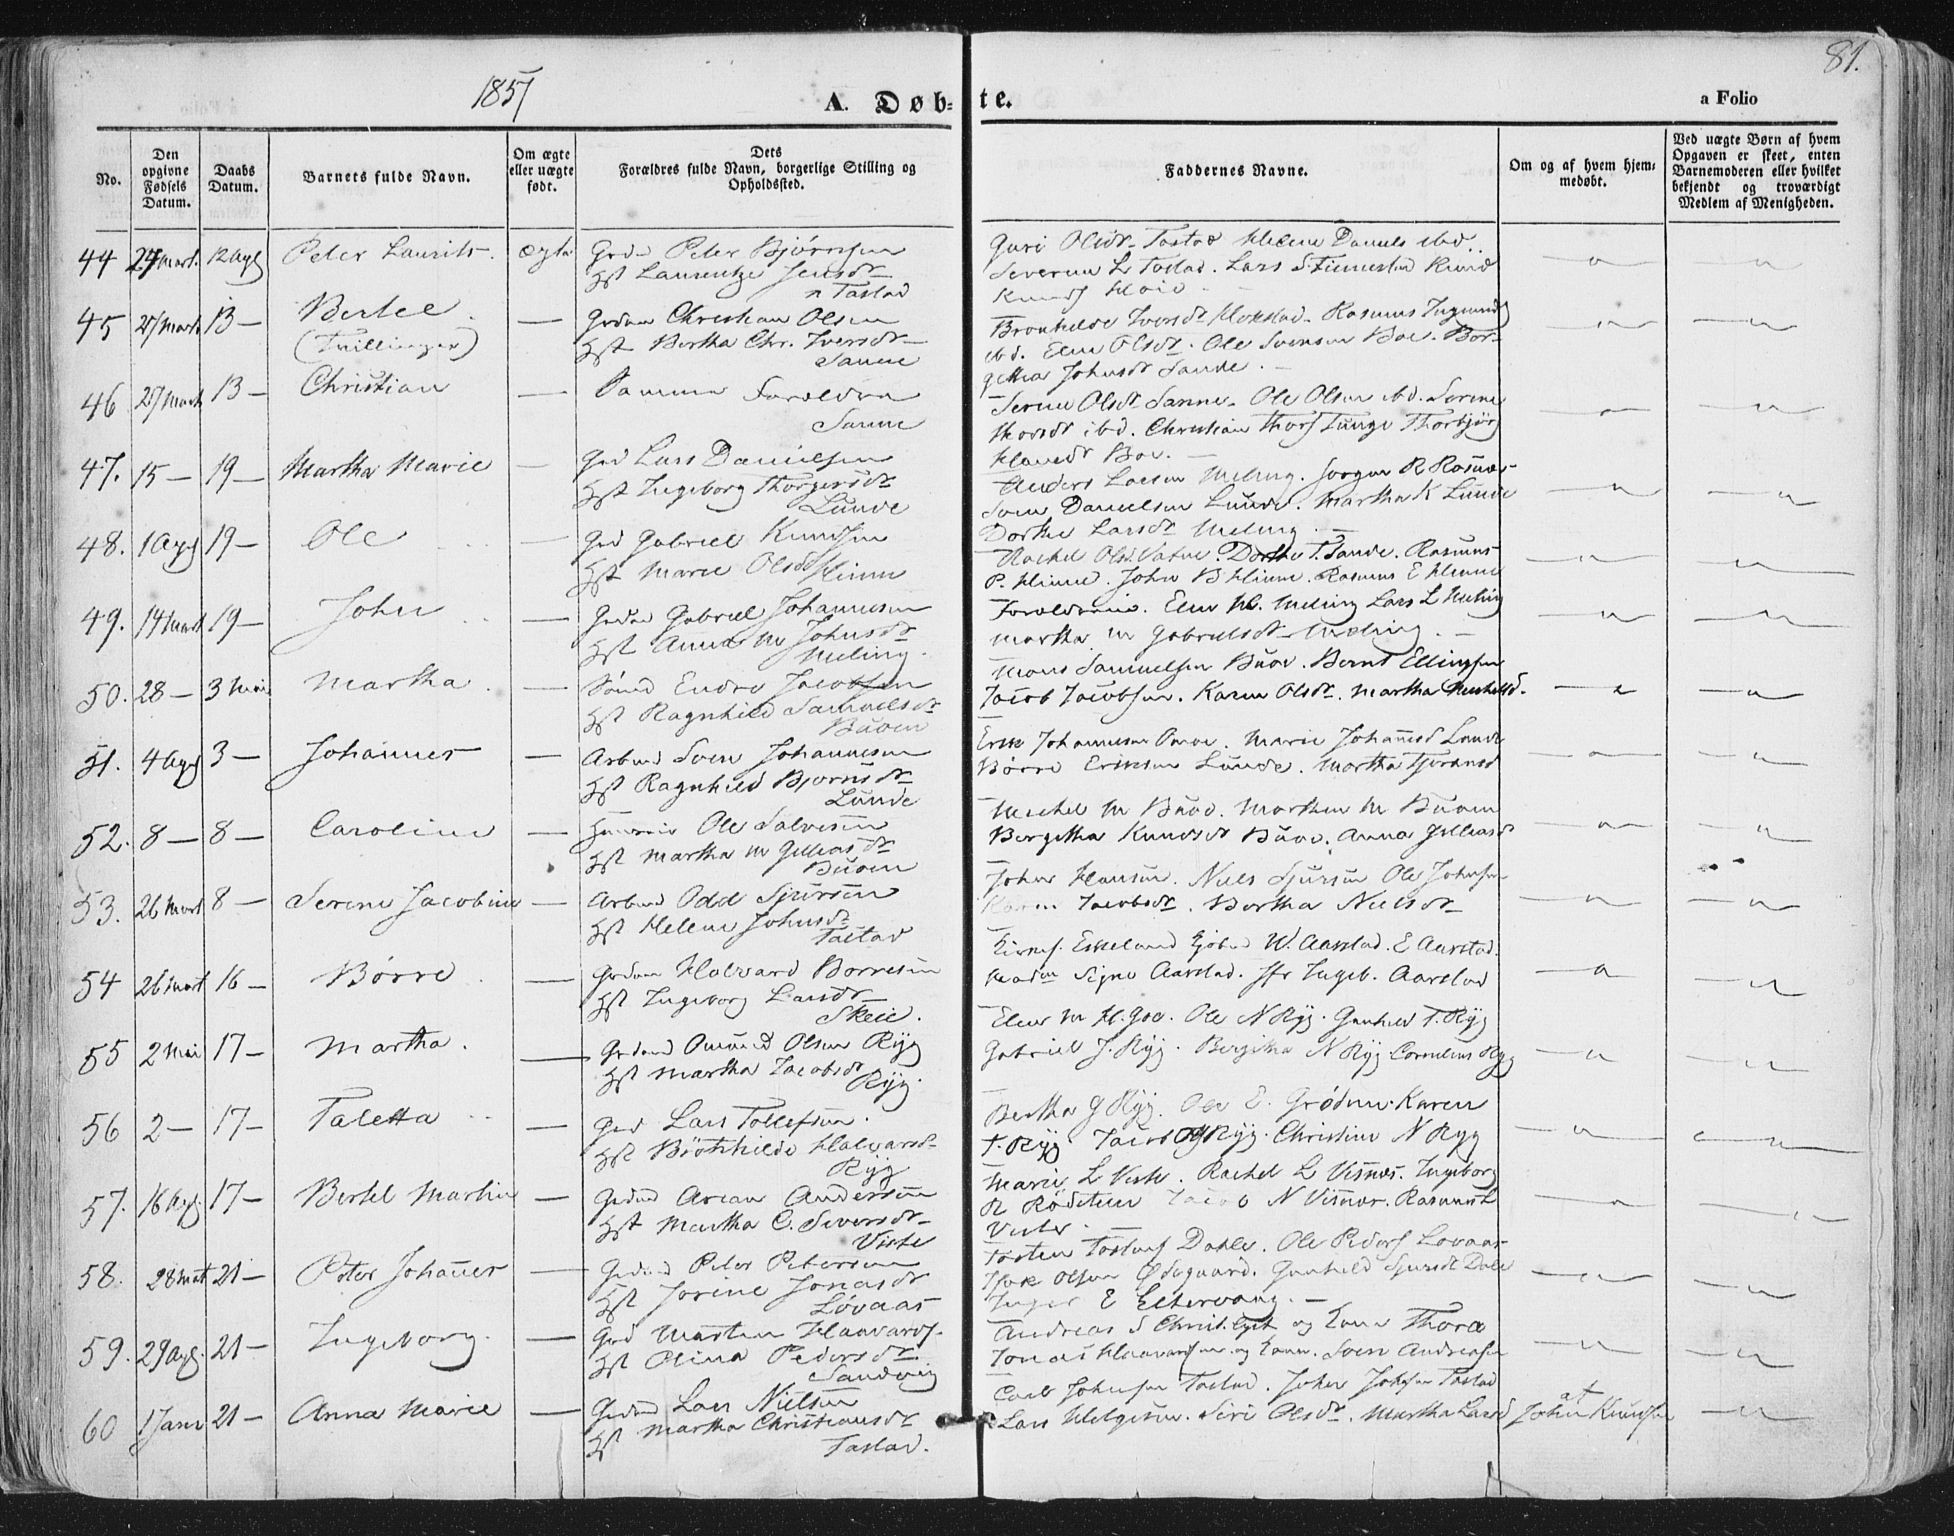 81.
1857
A. Døb-
te.
a Folio
No.
Den opgivne Fødsels Datum.
Daabs Datum.
Barnets fulde Navn.
Om ægte eller uægte født.
Dets Forældres fulde Navn, borgerlige Stilling og Opholdssted.
Faddernes Navne.
Om og af hvem hjemmedøbt.
Ved uægte Børn af hvem Opgaven er skeet, enten Barnemoderen eller hvilket bekjendt og troværdigt Medlem af Menigheden.
44 24 Mart. 12 Apl Peter Laurits. ægte Grdm Peter Bjørnsen
Hst Laurentze Jensdr
Tastad
Guri Olsdr Tastad Helene Daniels ibd.
Severin L Tastad. Lars S.
45 27 Marts 13 — Bertel. — Grdm Christian Olsen
(Tvillinger)
Hst Bertha Chr. Iversdr
Sanne
Bronhilde Iversdr Rasmus
ibd. Elen Olsdr. Ole Svensen Boe. Ber-
githa Johnsdr Sande. —
46 27 Marts 13 — Christian — Samme Forældre
Sanne
Serine Olsdr Sanne. Ole Olsen ibd. Serine
ibd. Christian Thors Tunge Thorbjørg
Boe. —
47. 15 — 19 — Martha Marie — Grd Lars Danielsen
Hst Ingeborg Thorgersdr
Lunde
Anders Larsen Meling.
Sven Danielsen Lunde. Martha K Lunde
Dorthe Larsdr Meling
48. 1 Apl 19 — Ole — Grd Gabriel Knudsen
Hst Marie Olsdr Hinne
Rachel Olsd. Dorthe T. Sande. Rasmus
P. Hinne. John B Hinne. Rasmus E Hinne
49. 14 Mart 19 — John — Grdm Gabriel Johannesen
Hst Anna M Johnsdr
Meling.
Forældrene. Elen M. Meling Lars L Meling
Martha M Gabrielsdr Meling. —
50. 28 — 3 Mai Martha. — Endre Jacobsen
Hst Ragnhild Samuelsdr
Buoen
Mons Samuelsen Buoe. Bernt Ellingsen
Jacob Jacobsen. Karen Olsdr. Martha
51. 4 Apl 3 — Johannes — Arbmd Sven Johannesen
Hst Ragnhild Bjornsdr
Lunde
Erik Johannesen Marie Johannesd Lunde
Børre Eriksen Lunde. Martha
52. 8 — 8 — Caroline — Ole Salvesen
Hst Martha M Gilliasdr
Buoen
Michel M Buoe. Morthen M Buoen
Bergitha Knudsdr Buoe. Anna Gilliasd
53. 26 Mart 8 — Serine Jacobine — Arbmd Odd Sjursen
Hst Helene Johnsdr
Tastad
Johan Hansen. Niels Sjursen Ole Johnsen
Karen Jacobsdr. Bertha Nielsdr
54 26 Mart 16 — Børre. — Grdm Halvard Borresen
Hst Ingeborg Larsdr
Skeie.
Eskeland W. Aarstad. E Aarstad.
Madm Signe Aarstad. Jfr Ingeb. Aarstad
55 2 Mai 17 — Martha. — Grdmd Omund Olsen Ryg
Hst Martha Jacobsdr Ryg.
Elen M H. Goe. Ole N Ryg. Gunhild T. Ryg
Gabriel J. Ryg. Bergitha N Ryg Cornelius Ryg
56 2 — 17 — Taletta — Grd Lars Tollefsen.
Hst Brønhilde Halvarsdr
Ryg
Bertha G Ryg. Ole E. Grødem. Karen
T. Ryg Jacob Ryg. Christine N Ryg
57. 16 Apl. 17 — Bertel Martin — Grdmd Arian Andersen
Hst Martha C. Seversdr
Viste
Marie L Viste. Rachel L Visnæs. Ingeborg
R Rødetun Jacob N Visnæs. Rasmus L
Viste.
58. 28 Mart 21 — Peter Johannes — Grdmd Peter Petersen
Hst Jorine Jonasdr
Løvaas
Torsten Dahle. Ole Løvaas
Olsen Ødegaard. Gunhild Sjursdr Dale
Inger E Eltervaag. —
59. 29 Apl. 21 — Ingeborg. — Grd Morten Haavards.
Hst Olina Pedersdr
Sandvig
Andreas S Christ. og Kone Thora
Jonas Haavardsen og Kone. Sven Andreasen
60 1 Janr 21 — Anna Marie — Grdmd Lars Nielsen
Hst Martha Christiansdr
Tastad.
Carl Johnsen Tastad. John Johnsen Tastad
Lars Helgesen. Siri Olsdr. Martha Larsd
af
John Knudsen